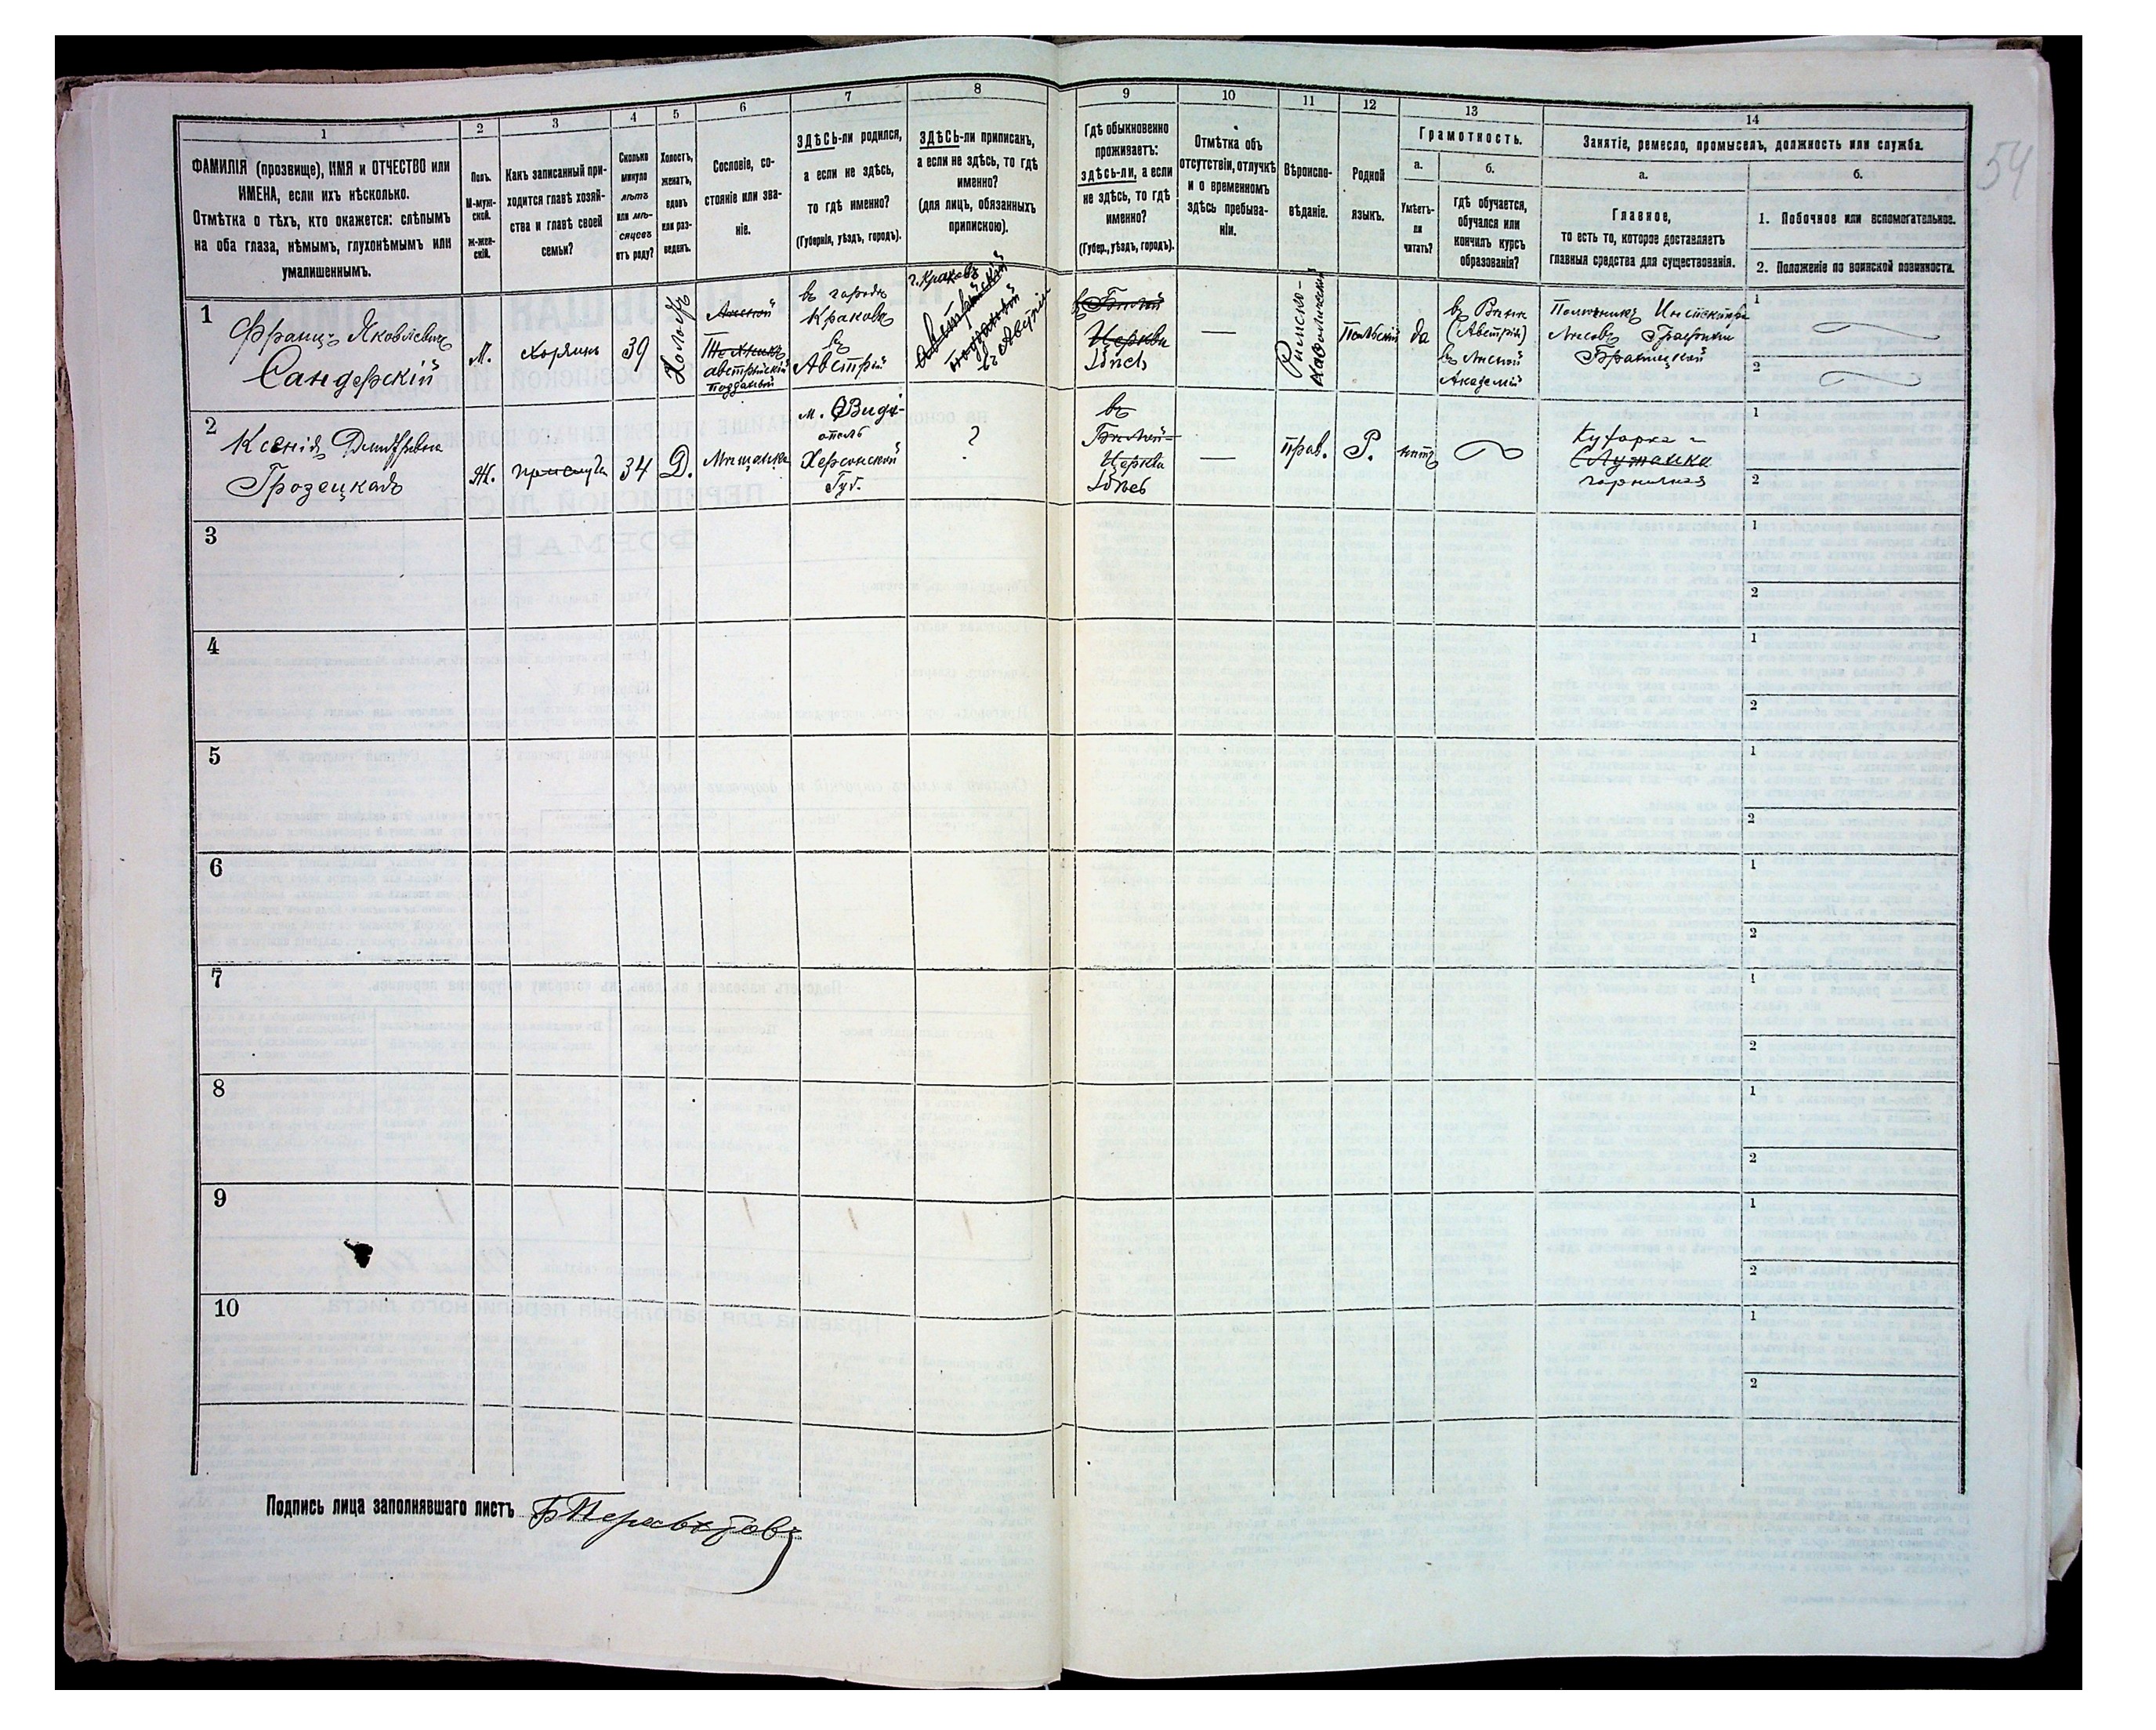 54
1
2
3
4
5
6
7
8
9
10
11
12
13
14
ФАМИЛІЯ (прозвище), ИМЯ и ОТЧЕСТВО или
ИМЕНА, если ихъ нѣсколько.
Отмѣтка о тѣхъ, кто окажется: слѣпымъ
на оба глаза, нѣмымъ, глухонѣмымъ или
умалишеннымъ.
Полъ.
М-муж-
ской.
ж-жен-
скій.
Какъ записанный при-
ходится главѣ хозяй-
ства и главѣ своей
семьи?
Сколько
минуло
лѣтъ
или мѣ-
сяцевъ
отъ роду?
Холостъ,
женатъ,
вдовъ
или раз-
веденъ.
Сословіе, со-
стояніе или зва-
ніе.
ЗДѢСЬ-ли родился,
а если не здѣсь,
то гдѣ именно?
(Губернія, уѣздъ, городъ).
ЗДѢСЬ-ли приписанъ,
а если не здѣсь, то гдѣ
именно?
(для лицъ, обязанныхъ
припискою).
Гдѣ обыкновенно
проживаетъ:
здѣсь-ли, а если
не здѣсь, то гдѣ
именно?
(Губер., уѣздъ, городъ).
Отмѣтка объ
отсутствіи, отлучкѣ
и о временномъ
здѣсь пребыва-
ніи.
Вѣроиспо-
вѣданіе.
Родной
языкъ.
Грамотность.
а.
б.
Умѣетъ-
ли
читать?
гдѣ обучается,
обучался или
кончилъ курсъ
образованія?
Занятіе, ремесло, промыселъ, должность или служба.
а.
б.
Главное,
то есть то, которое доставляетъ
главныя средства для существованія.
1. Побочное или вспомогательное.
2. Положеніе по воинской повинности.
1
Францъ Яковлевичъ
Сандерскій
М.
хозяинъ
39
Холостъ
Лѣсной
Техникъ
австрійскій
подданый
въ городѣ
Краковѣ
въ
Австріи
г. Краковъ
австрійскій
подданый
въ Австріи
въ Бѣлой
Церкви
здѣсь
—
Римско-
католическій
Польскій
да
въ Вѣнѣ
(Австрія)
въ Лѣсной
Академіи
Помощникъ Инспектора
Лѣсовъ Графини
Браницкой
1
2
2
Ксенія Дмитріевна
Грозецкая
Ж.
прислуга
34
Д.
Мѣщанка
м. Овиді-
ополь
Херсонской
Губ.
?
въ
Бѣлой-
Церкви
здѣсь
—
прав.
Р.
нѣтъ
Кухарка и
Служанка
горничная
1
2
3
1
2
4
1
2
5
1
2
6
1
2
7
1
2
8
1
2
9
1
2
10
1
2
Подпись лица заполнявшаго листъ